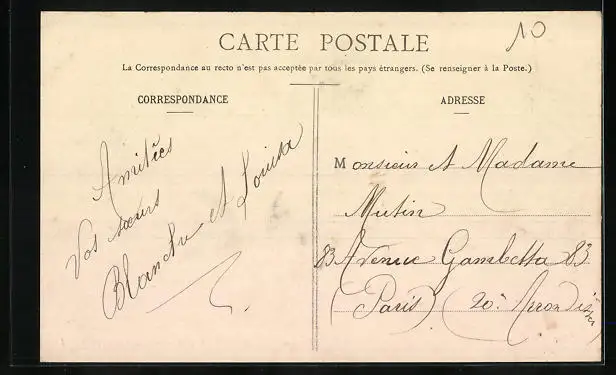 10
CARTE POSTALE
La Correspondance au recto n'est pas acceptée par tous les pays étrangers. (Se renseigner à la Poste.)
CORRESPONDANCE
Amitiées
Vos sœurs
Blanche et Louisa
ADRESSE
Monsieur et Madame
Mutin
83 Avenue Gambetta 83
(Paris) (20e Arrondisst)